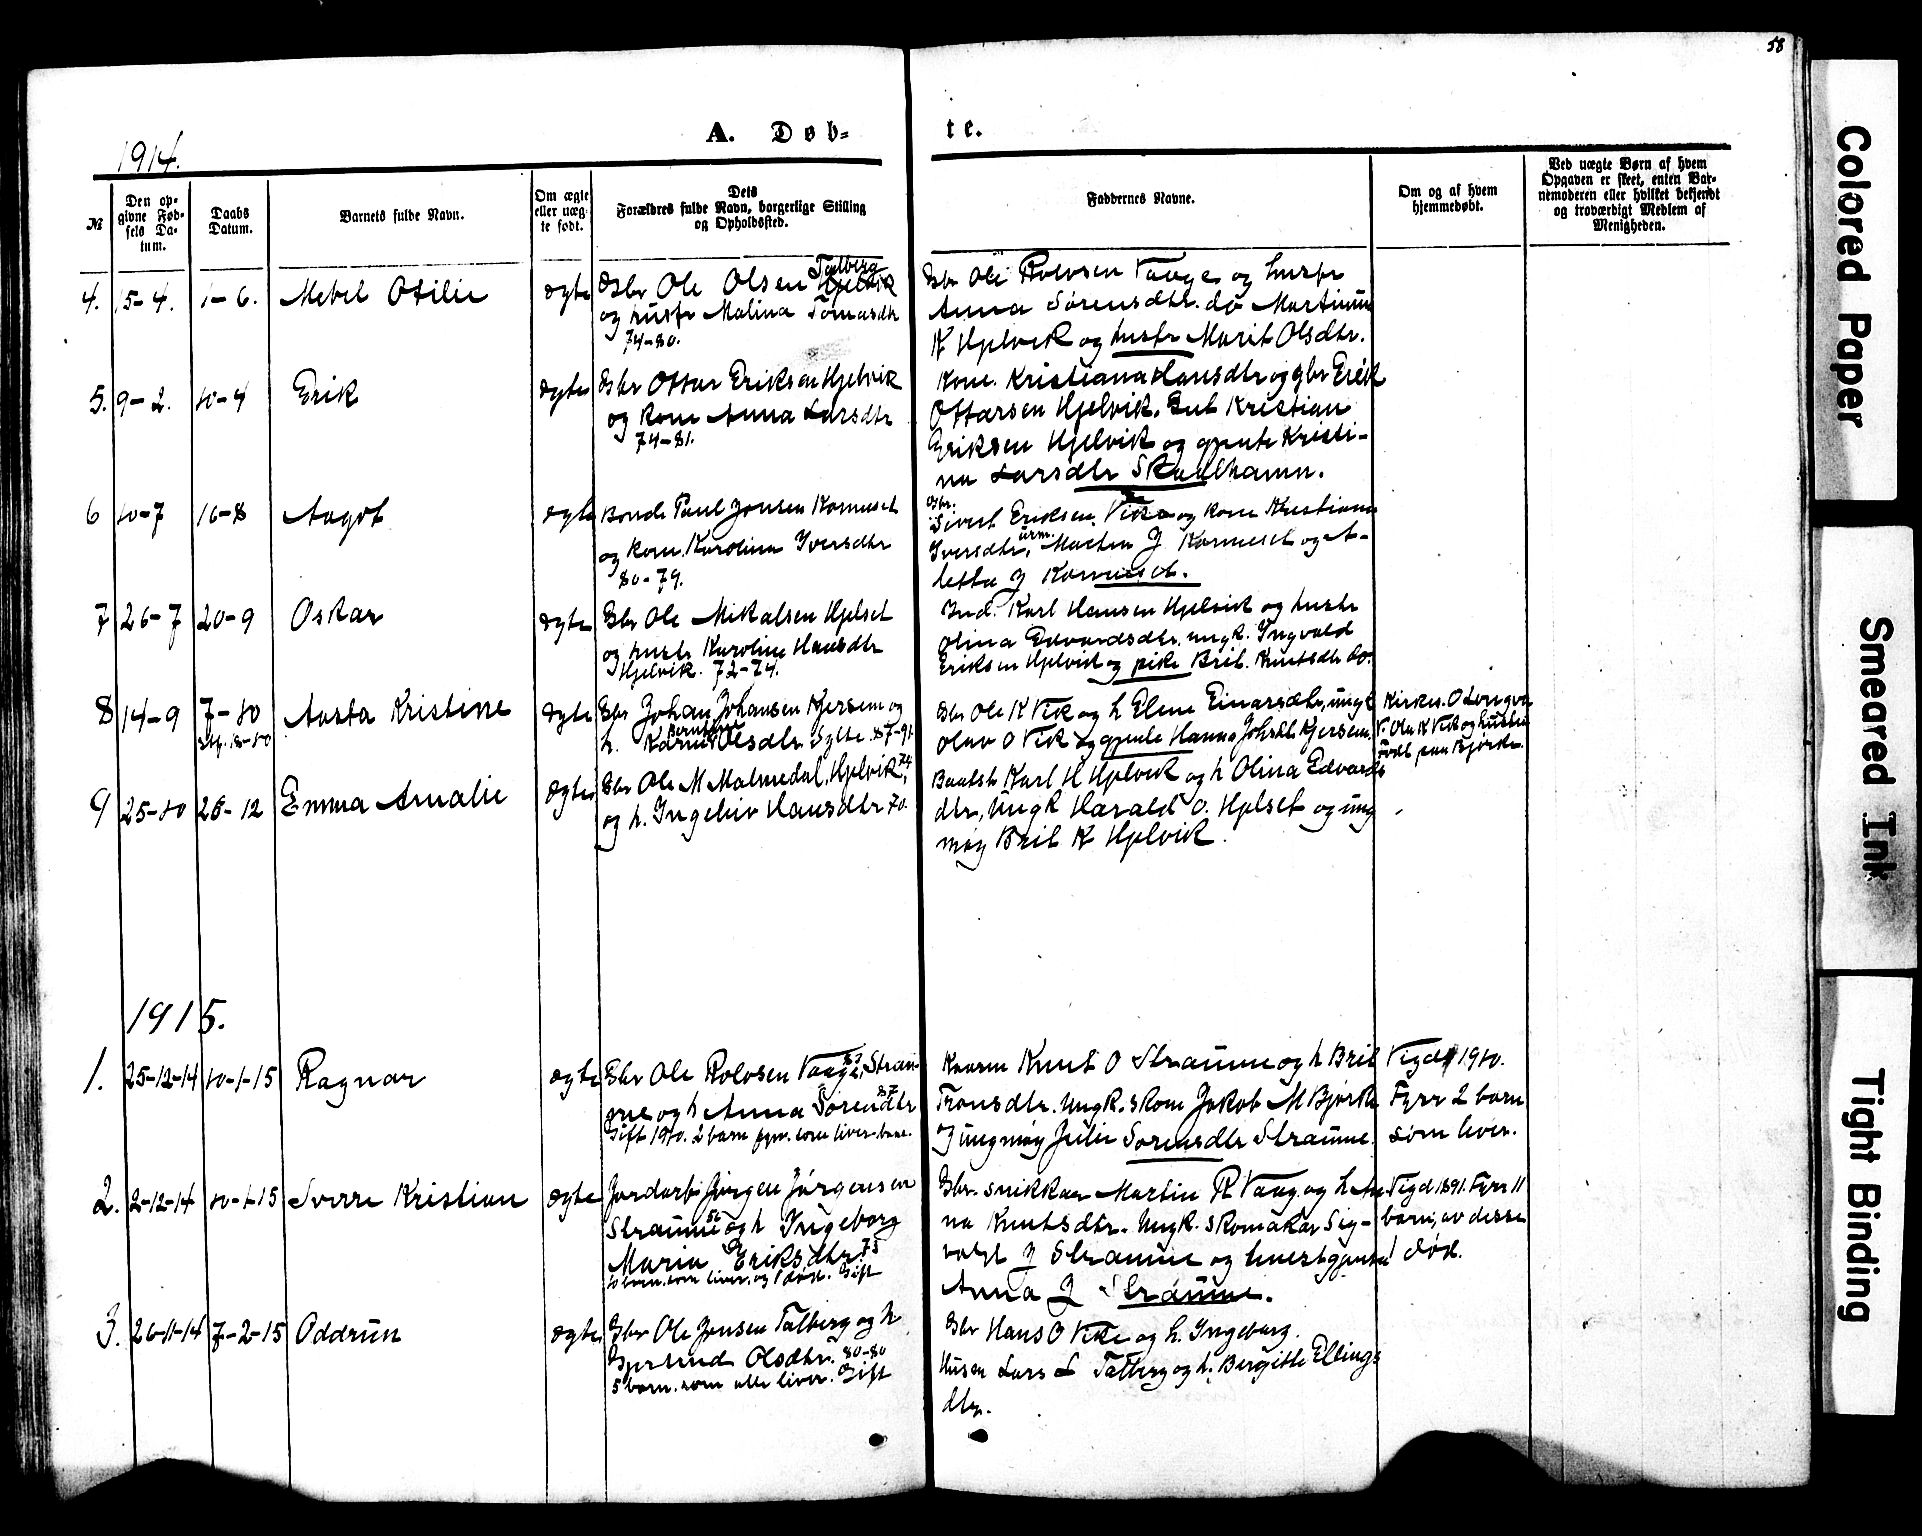 58
A. Døb-
te.
1914.
№
Den op-
givne Fød-
sels Da-
tum.
Daabs
Datum.
Barnets fulde Navn.
Om ægte
eller uæg-
te født.
Dets
Forældres fulde Navn, borgerlige Stilling
og Opholdssted.
Faddernes Navne.
Om og af hvem
hjemmedøbt.
Ved uægte Børn af hvem
Opgaven er skeet, enten Bar-
nemoderen eller hvilket bekjendt
og troværdigt Medlem af
Menigheden.
4. 15-4. 1-6. Mebel Otilie ægte Gbr Ole Olsen Hjelvik
Talberg
og hustr Malina Tomasdtr
74-80.
Gbr Ole Rolvsen Vaage og hustr
Anna Sørensdtr. do Martinus
K Hjelvik og hustr Marit Olsdtr.
5. 9-2. 10-4 Erik ægte Gbr Ottar Eriksen Hjelvik
og kone Anna Larsdtr
74-81.
Kone. Kristiana Hansdtr og gbr Erik
Ottarsen Hjelvik. Gut Kristian
Eriksen Hjelvik og gjente Kristi-
na Larsdtr Skaalhamn.
6 10-7 16-8 Aagot ægte Bonde Paul Jonsen Korneset
og kone. Karolina Iversdtr
80-79.
Gbr.
Sivert Eriksen Vike og kone Kristiana
Iversdtr, Maken J Korneset og A-
letta J Korneset.
7 26-7 20-9 Oskar ægte Gbr Ole Mikalsen Hjelset
og hustr Karoline Hansdtr
Hjelvik. 72-74.
Ind. Karl Hansen Hjelvik og hustr
Olina Edvardsdtr. ungk. Ingvald
Eriksen Hjelvik og pike Brit. Knutsdtr do.
8 14-9 7-10 Aasta Kristine ægte Gbr Johan Johansen Kjersem og
h. Karna Olsdtr Sylte 87-91
Gbr Ole K Vik og h Elene Einarsdtr, ungk
Olav O Vik og gjente Hanna Johsdt Kjersem.
Kirkes. O Longva
V. Ole K Vik og hustru
Født paa Bjørke.
9 25-10 26-12 Emma Amalie ægte Gbr Ole M Malmedal, Hjelvik 74,
og h. Ingebor Hansdtr 70.
Baatsb Karl H Hjelvik og h Olina Edvards
dtr, Ungk Harald O. Hjelset og ung
møy Brit K Hjelvik.
1915.
1. 25-12-14 10-1-15 Ragnar ægte Gbr Ole Rolvsen Vaage, 83 Straum-
me og h Anna Sørensdtr 87
Gift 1910. 2 barn fyrr. som liver.
Kaarm Knut O Straume og h Brit
Tronsdtr. Ungk. skom Jakob M Bjørke
og ungmøy Julie Sørensdtr Straume.
Vigd 1910.
Fyrr 2 barn
som liver.
2. 2-12-14 10-1-15 Sverre Kristian ægte Jordarb Jørgen Jørgensen
Straume og h Ingeborg
Maria Eriksdtr. 75
10 barn. som liver. og 1 død. Gift
Gbr. snikkar Martin R Vaag. og h An-
na Knutsdtr. Ungk. Skomakar Sig-
valdt J Straume og hueskjenta
Anna J Straume.
Vigd 1891. Fyrr 11
barn, av desse
1 død.
3. 26-11-14 7-2-15 Oddrun ægte Gbr Ole Jensen Talberg og h
Gjertrud Olsdtr. 80-80
5 barn. som alle liver. Gift
Gbr Hans O Vike og h. Ingeborg.
Husm Lars L Talberg og h. Bergitte Ellings
dtr.
Colored Paper
Smeared Ink
Tight Binding